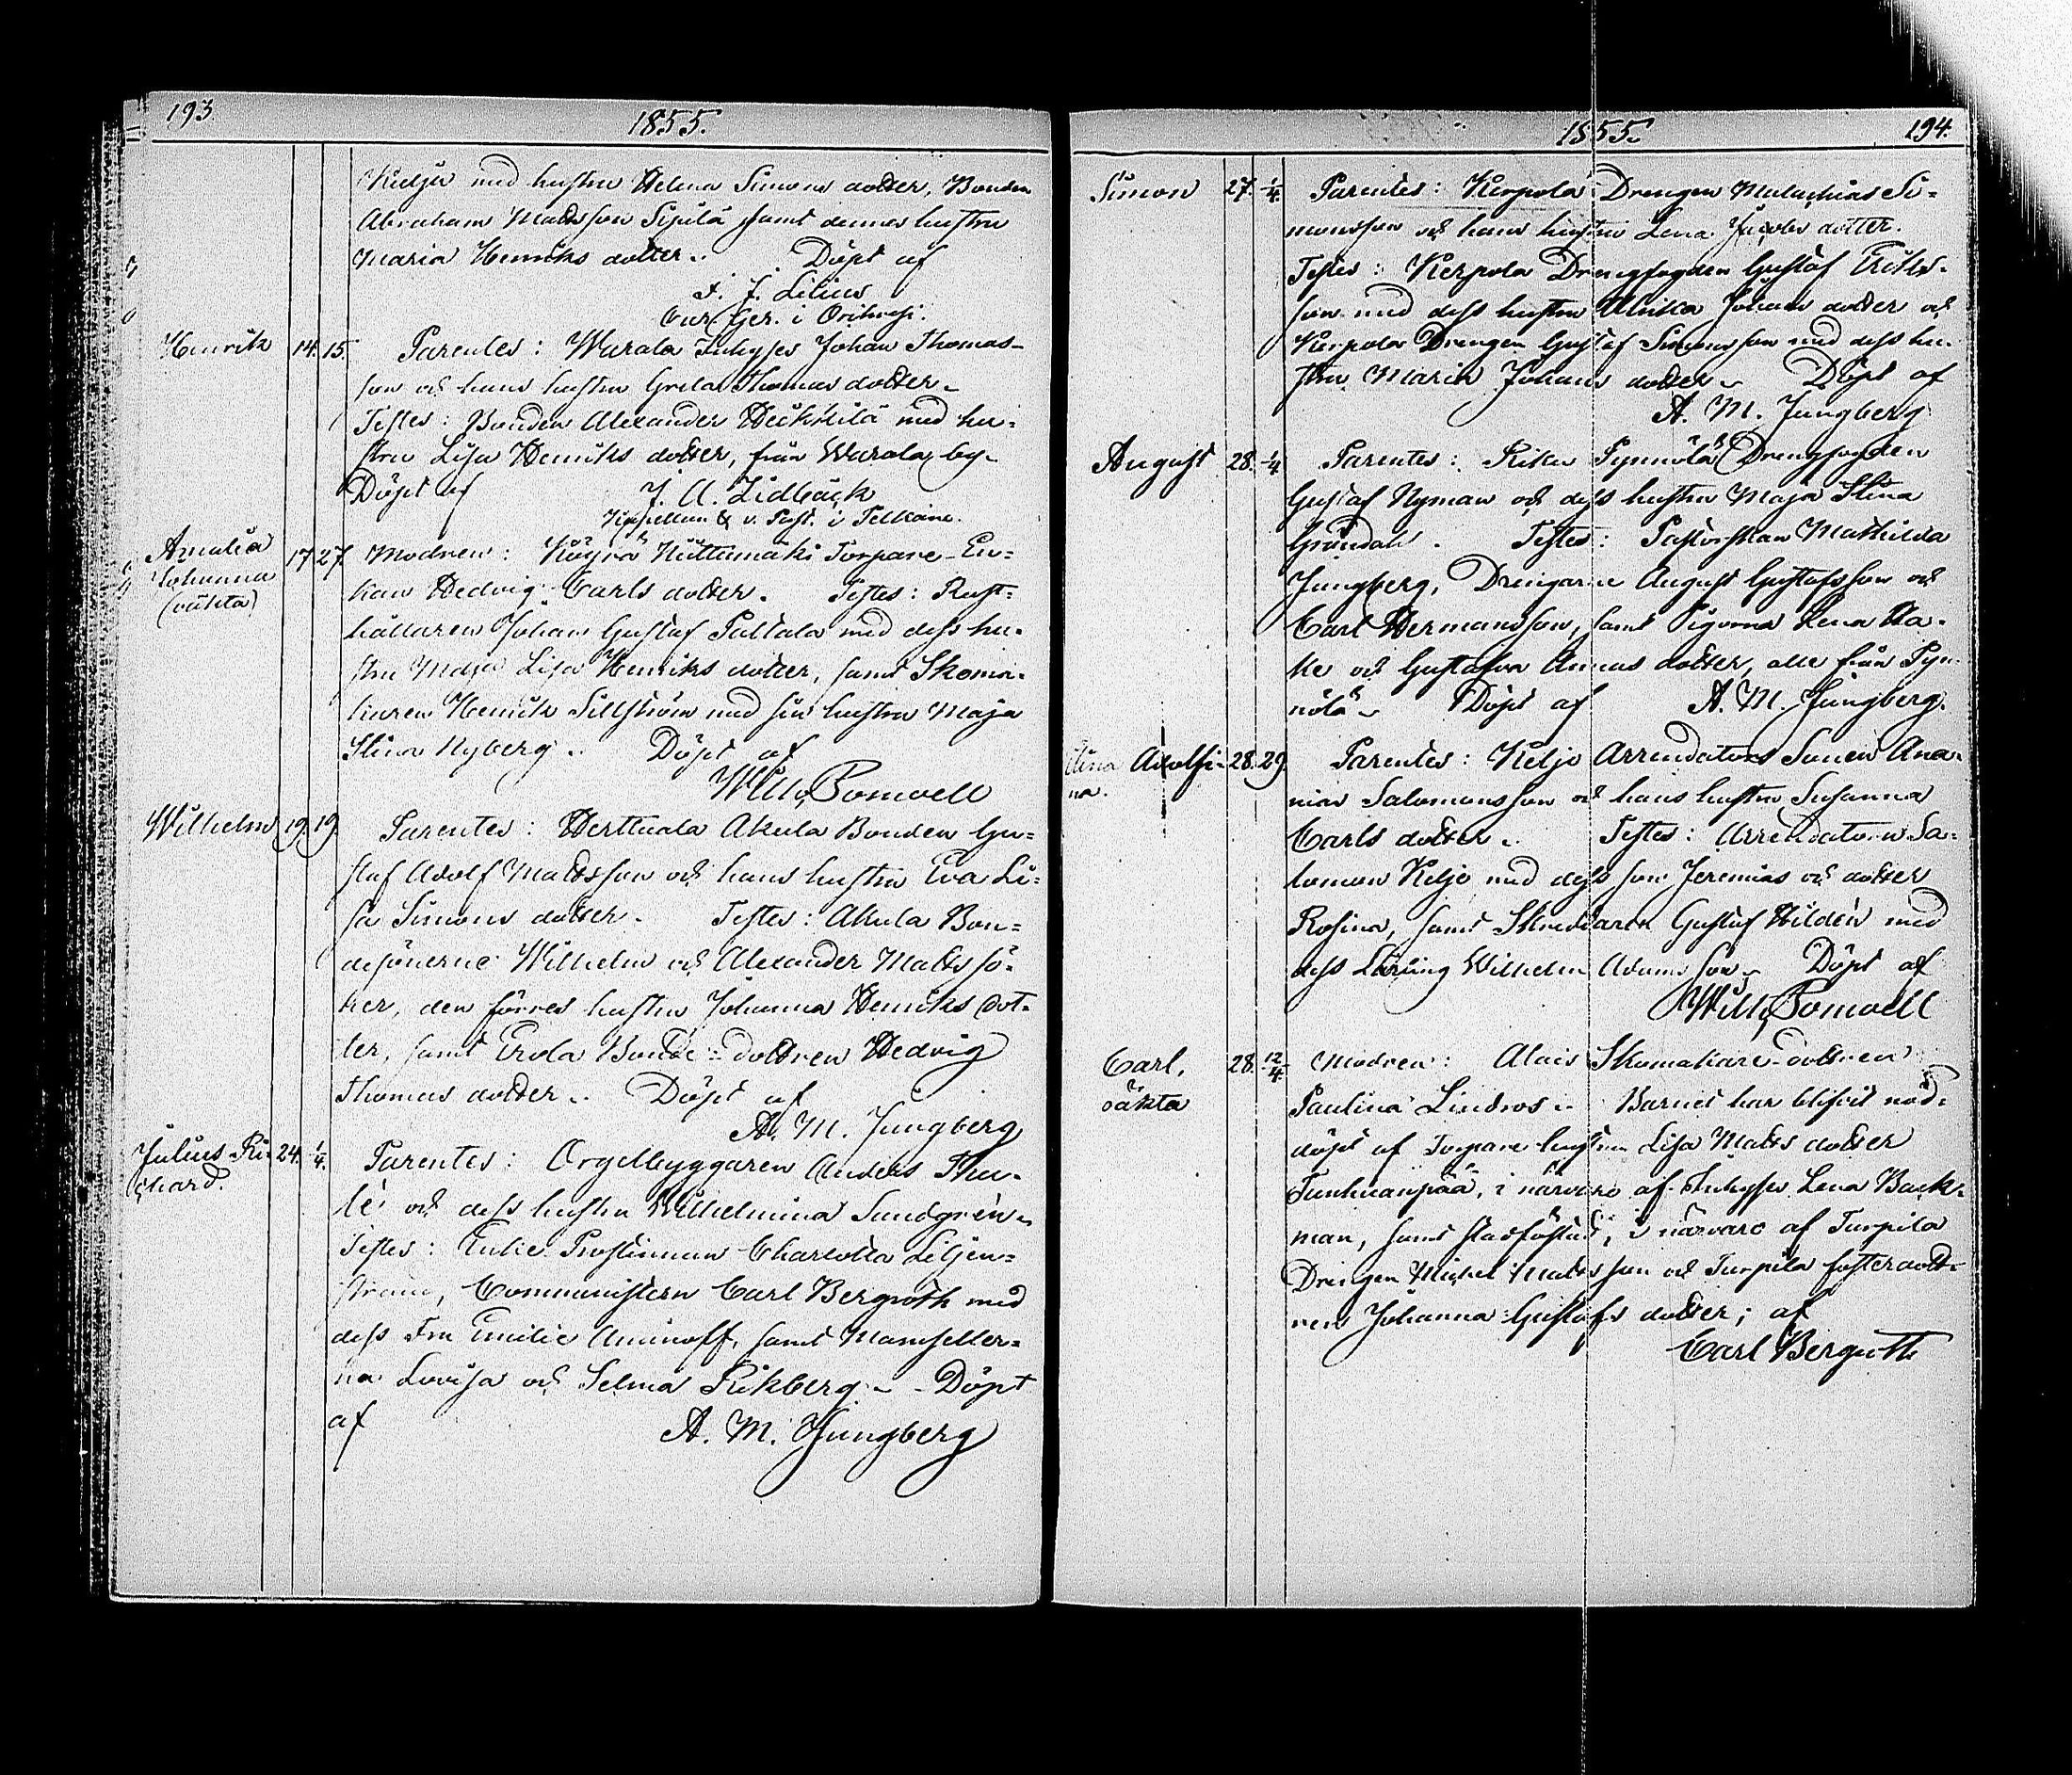 193.
1855.
med hustru Helena Simons dotter, Bonden
Abraham Mattsson Sipilä samt dennes hustru
Maria Henriks dotter. Döpt af
F. J. Lilius
Cur. Ger. i Orihvesi.
Henrik 14. 15. Parentes: Warala Inhyses Johan Thomas-
son och hans hustru Greta Thomas dotter.
Testes: Bonden Alexander Heikkilä med hu-
stru Lisa Henriks dotter, från Warala by.
Döpt af J. A. Lidbäck
Kapellan & v. Past. i Pelkäne.
Amalia
Johanna
(oäkta)
17 27. Modren: Köyrä Torpare-En-
kan Hedvig Carls dotter. Testes: Rust-
hållaren Johan Gustaf Paltala med dess hu-
stru Maja Lisa Henriks dotter, samt Skoma-
karen Henrik Sillström med sin hustru Maja
Stina Nyberg. Döpt af
Wilh. Pomoell
Wilhelm 19. 19. Parentes: Herttuala Akula Bonden Gu-
staf Adolf Mattsson och hans hustru Eva Li-
sa Simons dotter. Testes: Akula Bon-
desönerne Wilhelm och Alexander Matts sö-
ner, den förres hustru Johanna Henriks dot-
ter, samt Erola Bonde-dottren Hedvig
Thomas dotter. Döpt af
A. M. Jungberg
Julius Ri-
chard.
24. 1/4. Parentes: Orgelbyggaren Anders Thu-
lé och dess hustru Wilhelmina Sundgrén.
Testes: Enke Prostinnan Charlotta Liljen-
strand, Comministern Carl Bergroth med
dess Fru Emilie Aminoff, samt Mamseller-
na Lovisa och Selma Rikberg. Döpt
af A. M. Jungberg
1855.
194.
Simon 27. 1/4. Parentes: Kerpola Drengen Malachias Si-
monsson och hans hustru Lena Jacobs dotter.
Testes: Kerpola Drengfogden Gustaf Eriks-
son med dess hustru Ulrika Johans dotter och
Kerpola Drengen Gustaf Simonsson med dess hu-
stru Maria Johans dotter. Döpt af
A. M. Jungberg
August 28. 1/4 Parentes: Riku Pynnölä Drengfogden
Gustaf Nyman och dess hustru Maja Stina
Gröndahl. Testes: Pastorskan Mathilda
Jungberg, Drengarne August Gustafsson och
Carl Hermansson, samt Pigorna Lena
ke och Gustafva dotter, alle från Pyn-
nölä. Döpt af A. M. Jungberg.
Adolfi-
na.
28. 29. Parentes: Keljo Arrendators Sonen Ana-
nias Salomonsson och hans hustru Susanna
Carls dotter. Testes: Arrendatorn Sa-
lomon Keljo med dess son Jeremias och dotter
Rosina, samt Skreddaren Gustaf Hildén med
dess Lärling Wilhelm Adamsson. Döpt af
Wilh. Pomoell
Carl,
oäkta
28. 12/4. Modren: Alais Skomakare-dottren
Paulina Lindros. Barnet har blifvit nöd-
döpt af Torpare hustrun Lisa Matts dotter
Tunhuanpää, i närvaro af Inhyses Lena Back-
man, samt stadfästadt, i närvaro af Turpila
Drengen Michel Mattsson och Turpila fosterdott-
ren Johanna Gustafs dotter; af
Carl Bergroth